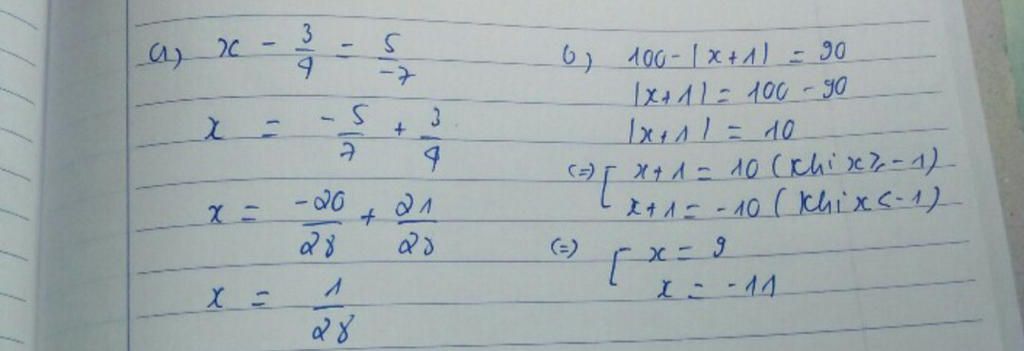 a) x - 3/4 = 5/-7
x = -5/7 + 3/4
x = -20/28 + 21/28
x = 1/28
b) 100 - |x+1| = 90
|x+1| = 100 - 90
|x+1| = 10
(=) [ x+1 = 10 (khi x ≥ -1)
x+1 = -10 (khi x < -1)
(=) [ x = 9
x = -11